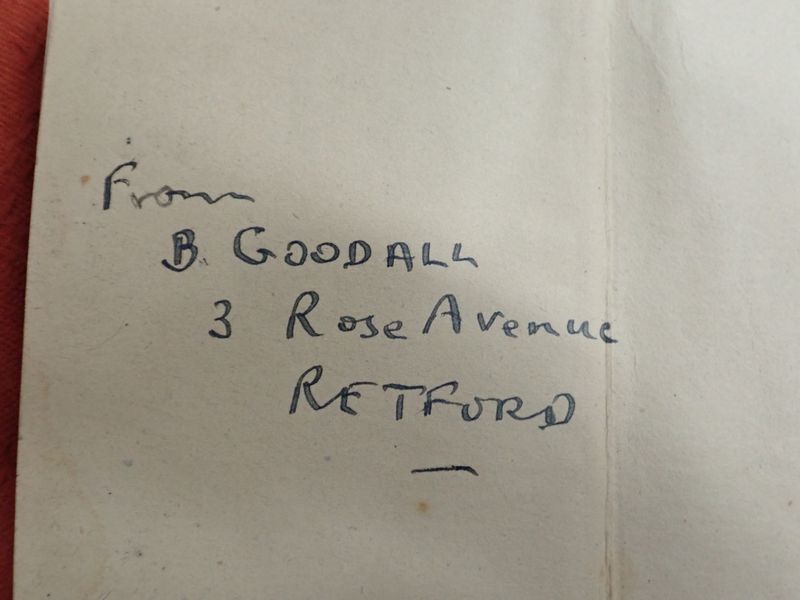 From
B. GOODALL
3 Rose Avenue
RETFORD